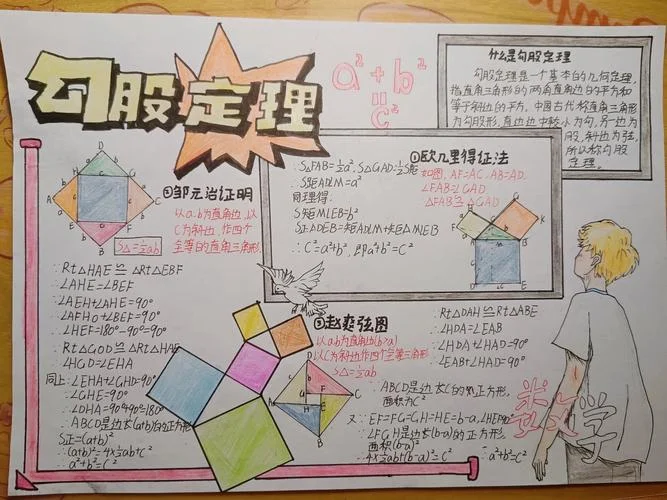 勾股定理
a²+b²
=
c²
什么是勾股定理
勾股定理是一个基本的几何定理,
指直角三角形的两角直角边的平方和
等于斜边的平方。中国古代称直角三角形
为勾股形,直边边中较小为勾,另一边为
股,斜边为弦,
所以称勾股
定理。
②邹元治证明
以a.b为直角边,以
C为斜边,作四个
全等的直角三角形.
S△=½ab
∵Rt△HAE≌△RT△EBF
∴∠AHE=∠BEF
∵∠AEH+∠AHE=90°
∴∠HEF=180°-90°=90°
∴∠HGD=∠EHA
同上:∠EHA+∠GHD=90°
∴∠GHE=90°
∴ABCD是边长(a+b)的正方形
S正=(a+b)²
∴(a+b)²=4×½ab+C²
∴a²+b²=C²
①欧几里得证法
如图,AF=AC,AB=AD,
∠FAB=∠GAD
△FAB≌△GAD
∵S△FAB=½a²,S△GAD=½S矩
∴S矩ADLM=a²
同理得:
S矩MLEB=b²
S正ADEB=S矩ADLM+S矩MLEB
∴C²=a²+b²,即a²+b²=C²
③赵爽弦图
以a.b为直角边(b>a)
以C为斜边作四个全等三角形
S△=½ab
∵Rt△DAH≌RT△ABE
∴∠HDA=∠EAB
∵∠HDA+∠HAD=90°
∴∠EAB+∠HAD=90°
∴ABCD是边长C的正方形,
面积为C²
又∵EF=FG=GH=HE=b-a,∠HEF=90°
∴EFGH是边长(b-a)的正方形,
面积(b-a)²
∴4×½ab+(b-a)²=C²
∴a²+b²=C²
数学